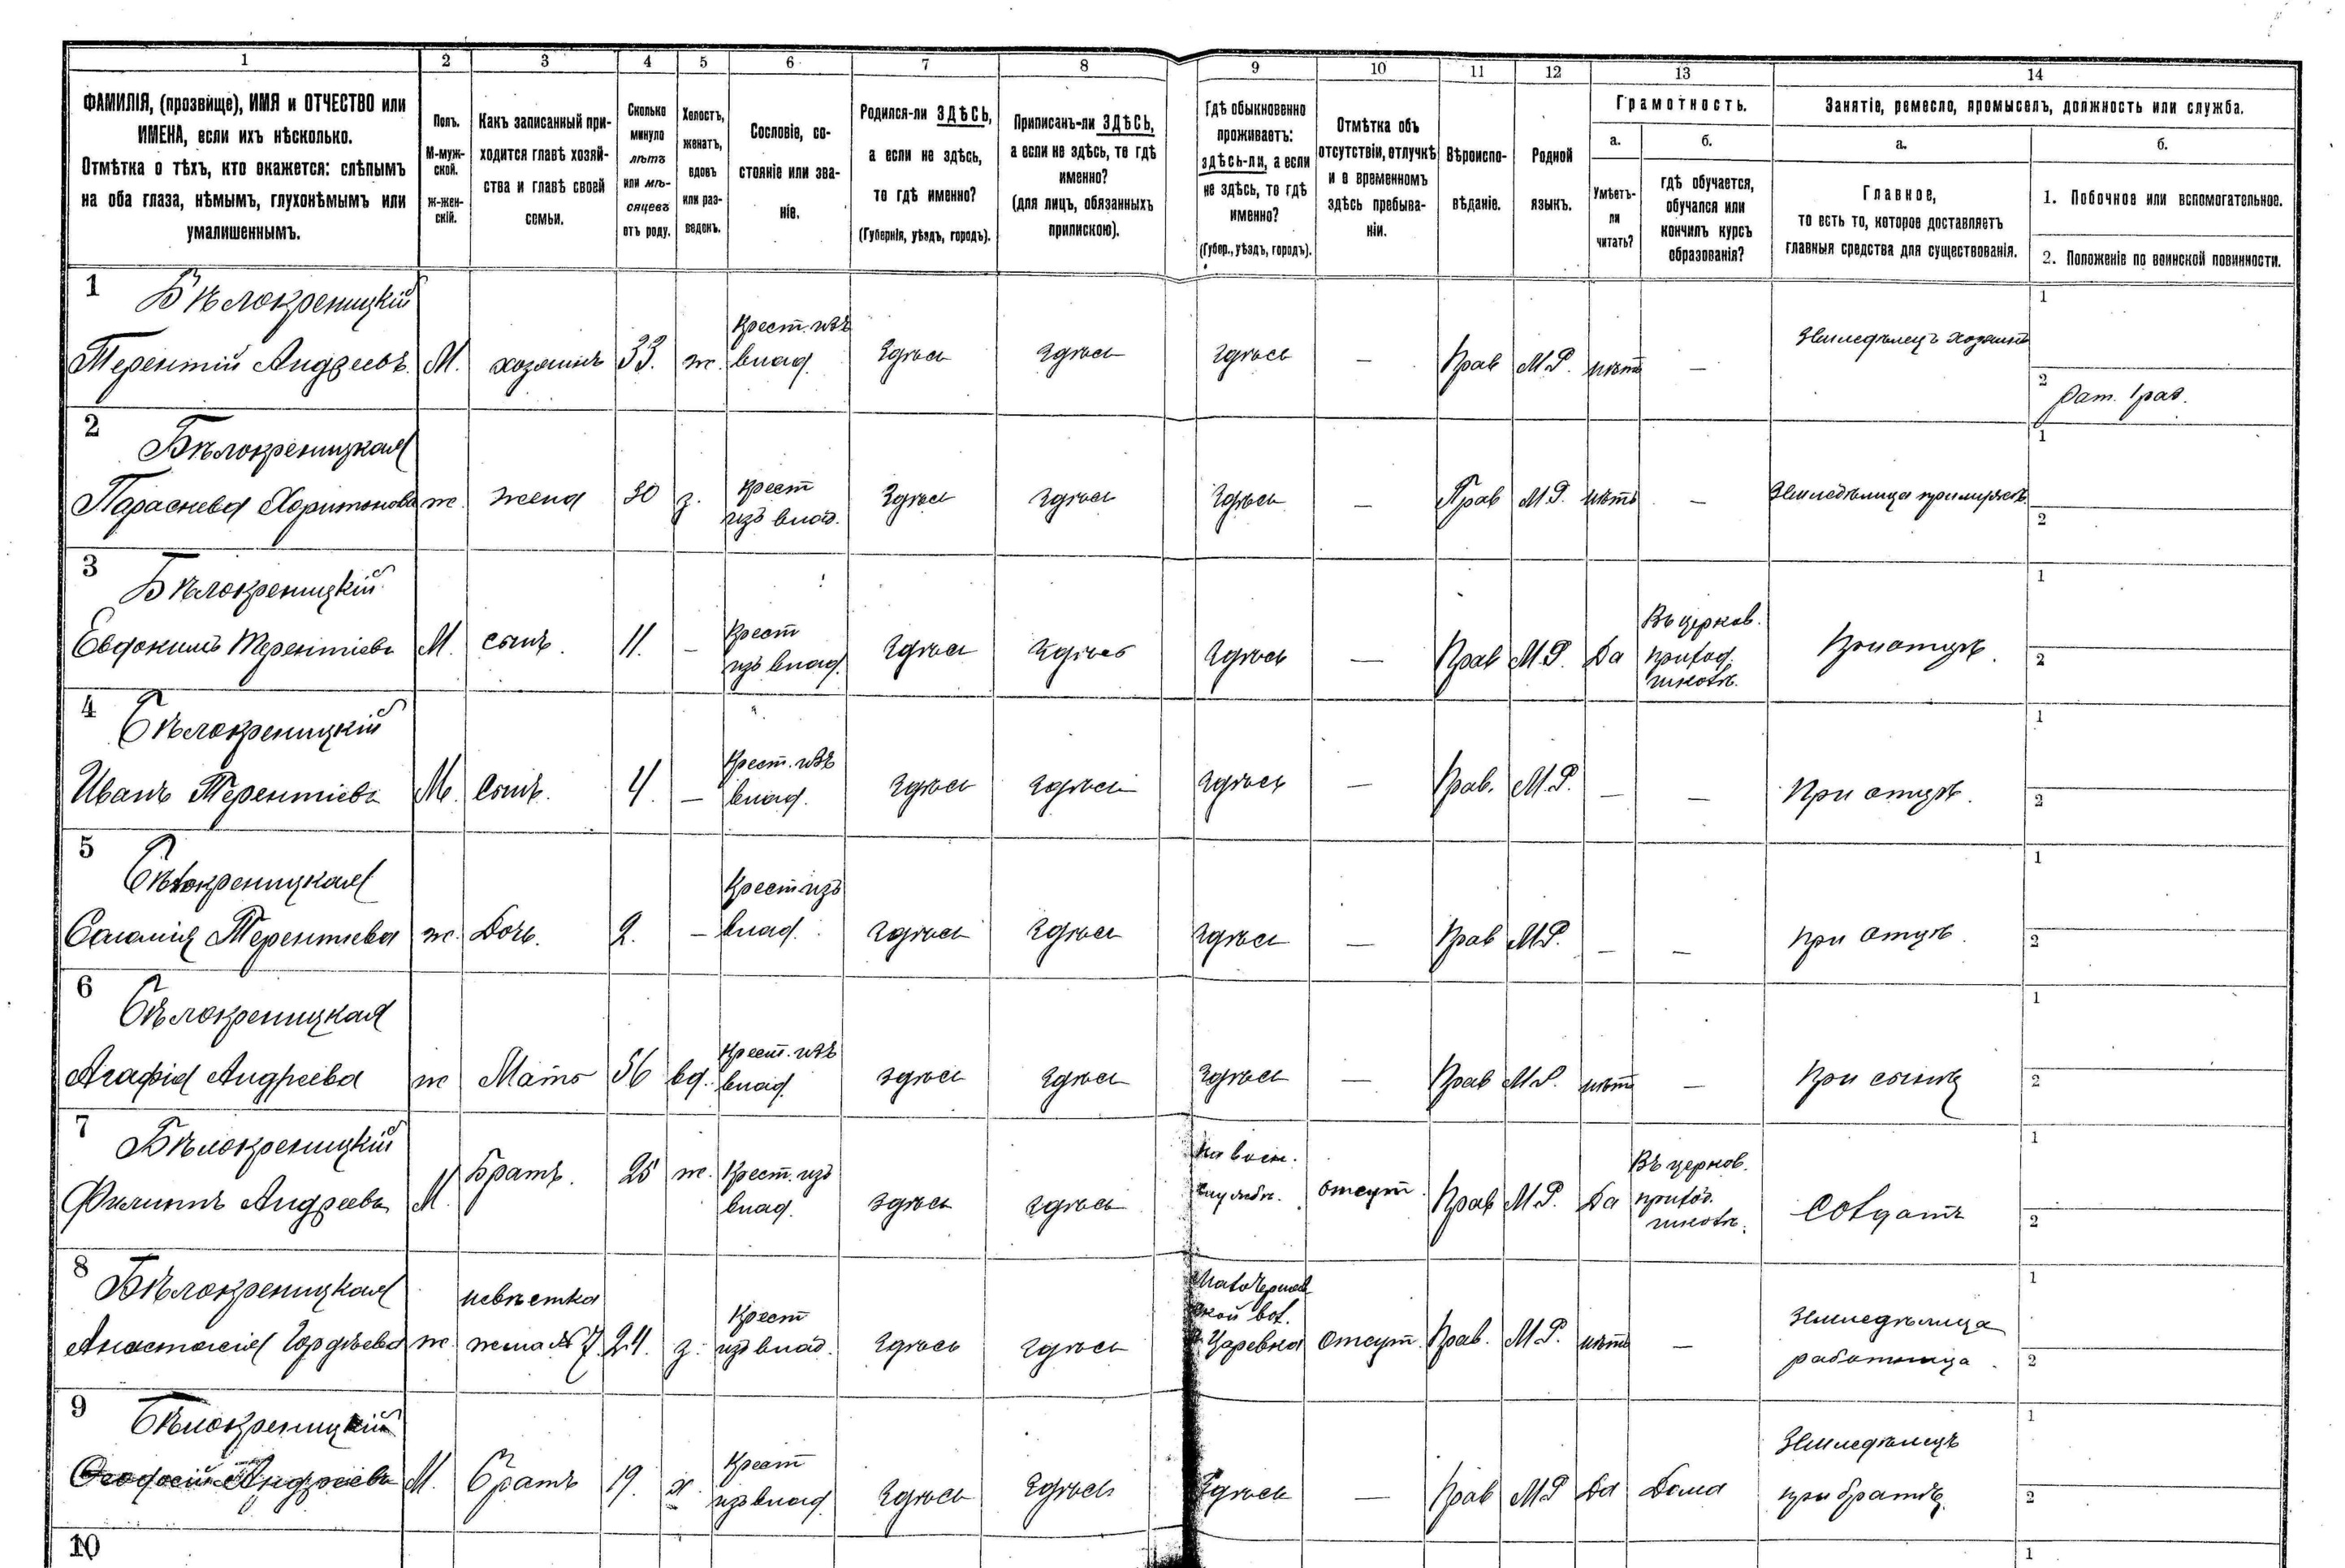 1 2 3 4 5 6 7 8 9 10 11 12 13 14
ФАМИЛІЯ, (прозвище), ИМЯ и ОТЧЕСТВО или
ИМЕНА, если ихъ нѣсколько.
Отмѣтка о тѣхъ, кто окажется: слѣпымъ
на оба глаза, нѣмымъ, глухонѣмымъ или
умалишеннымъ.
Полъ.
М-муж-
ской.
Ж-жен-
скій.
Какъ записанный при-
ходится главѣ хозяй-
ства и главѣ своей
семьи.
Сколько
минуло
лѣтъ
или мѣ-
сяцевъ
отъ роду.
Холостъ,
женатъ,
вдовъ
или раз-
веденъ.
Сословіе, со-
стояніе или зва-
ніе.
Родился-ли ЗДѢСЬ,
а если не здѣсь,
то гдѣ именно?
(Губернія, уѣздъ, городъ).
Приписанъ-ли ЗДѢСЬ,
а если не здѣсь, то гдѣ
именно?
(для лицъ, обязанныхъ
припискою).
Гдѣ обыкновенно
проживаетъ:
здѣсь-ли, а если
не здѣсь, то гдѣ
именно?
(Губер., уѣздъ, городъ).
Отмѣтка объ
отсутствіи, отлучкѣ
и о временномъ
здѣсь пребыва-
ніи.
Вѣроиспо-
вѣданіе.
Родной
языкъ.
Грамотность.
а.
Умѣетъ-
ли
читать?
б.
гдѣ обучается,
обучался или
кончилъ курсъ
образованія?
Занятіе, ремесло, промыселъ, должность или служба.
а.
Главное,
то есть то, которое доставляетъ
главныя средства для существованія.
б.
1. Побочное или вспомогательное.
2. Положеніе по воинской повинности.
1 Бѣлокреницкій
Терентій Андреевъ М. хозяинъ 33. ж.
Крест. изъ
влад.
здѣсь здѣсь здѣсь — Прав М.Р. нѣтъ —
Земледѣлецъ хозяинъ
1
2 Рат. 1 раз.
2 Бѣлокреницкая
Параскева Харитонова ж. жена 30 з.
Крест
изъ влад.
здѣсь здѣсь здѣсь — Прав М.Р. нѣтъ —
Земледѣлица при мужѣ
1
2
3 Бѣлокреницкій
Евдокимъ Терентіевъ М. сынъ. 11. —
Крест
изъ влад.
здѣсь здѣсь здѣсь — Прав М.Р. Да
Въ церков.
приход.
школѣ.
При отцѣ.
1
2
4 Бѣлокреницкій
Иванъ Терентіевъ М. Сынъ. 4. —
Крест. изъ
влад.
здѣсь здѣсь здѣсь — Прав. М.Р. — —
При отцѣ.
1
2
5 Бѣлокреницкая
Соломія Терентіева ж. Дочь. 2. —
Крест изъ
влад.
здѣсь здѣсь здѣсь — Прав М.Р. — —
При отцѣ.
1
2
6 Бѣлокреницкая
Агафія Андреева ж Мать 56 вд.
Крест. изъ
влад.
здѣсь здѣсь здѣсь — Прав М.Р. нѣтъ —
При сынѣ
1
2
7 Бѣлокреницкій
Филиппъ Андреевъ М Братъ. 25 ж.
Крест. изъ
влад.
здѣсь здѣсь
На воен.
службѣ.
отсут. Прав М.Р. Да
Въ церков.
приход.
школѣ.
Солдатъ
1
2
8 Бѣлокреницкая
Анастасія Гордѣева ж.
невѣстка
жена № 7. 24. з.
Крест
изъ влад.
здѣсь здѣсь
ской вол.
Царевка
Отсут. Прав. М.Р. нѣтъ —
Земледѣлица
работница.
1
2
9 Бѣлокреницкій
Ѳеодосій Андреевъ М. Братъ 19. х.
Крест
изъ влад.
здѣсь здѣсь здѣсь — Прав М.Р Да Дома
Земледѣлецъ
при братѣ.
1
2
10
1